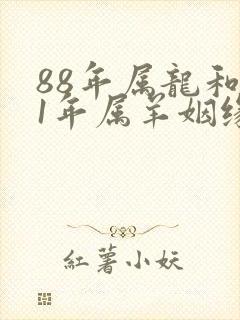 88年属龍和
1年属羊姻缘
紅薯小妖